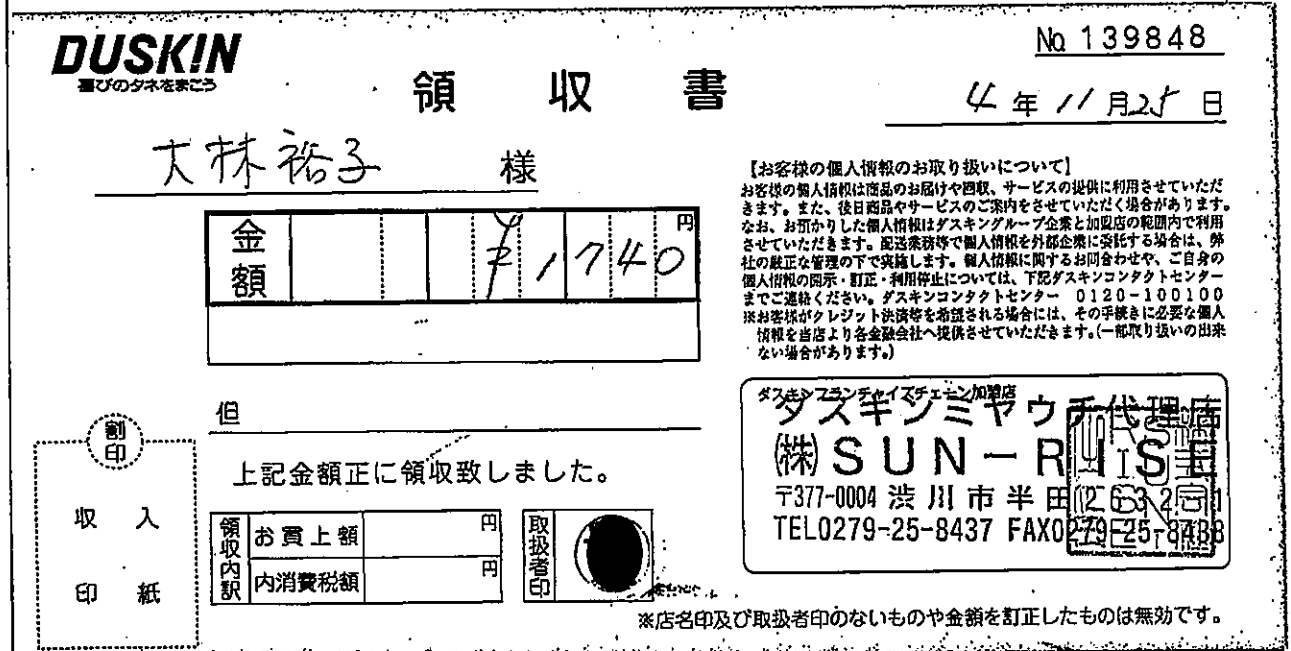 DUSKIN
喜びのタネをまこう
No 139848
領 収 書
4 年 11 月 25 日
大林裕子 様
金額 ¥1,740 円
【お客様の個人情報のお取り扱いについて】
お客様の個人情報は商品のお届けや回収、サービスの提供に利用させていただ
きます。また、後日商品やサービスのご案内をさせていただく場合があります。
なお、お預かりした個人情報はダスキングループ企業と加盟店の範囲内で利用
させていただきます。配送業務等で個人情報を外部企業に委託する場合は、弊
社の厳正な管理の下で実施します。個人情報に関するお問合わせや、ご自身の
個人情報の開示・訂正・利用停止については、下記ダスキンコンタクトセンター
までご連絡ください。ダスキンコンタクトセンター 0120-100100
※お客様がクレジット決済等を希望される場合には、その手続きに必要な個人
情報を当店より各金融会社へ提供させていただきます。(一部取り扱いの出来
ない場合があります。)
但
上記金額正に領収致しました。
割印
収 入
印 紙
領収内訳
お買上額 円
内消費税額 円
取扱者印
ダスキンフランチャイズチェーン加盟店
ダスキンミヤウチ代理店
(株)SUN-RISE
〒377-0004 渋川市半田
TEL0279-25-8437 FAX0279-25-8438
※店名印及び取扱者印のないものや金額を訂正したものは無効です。